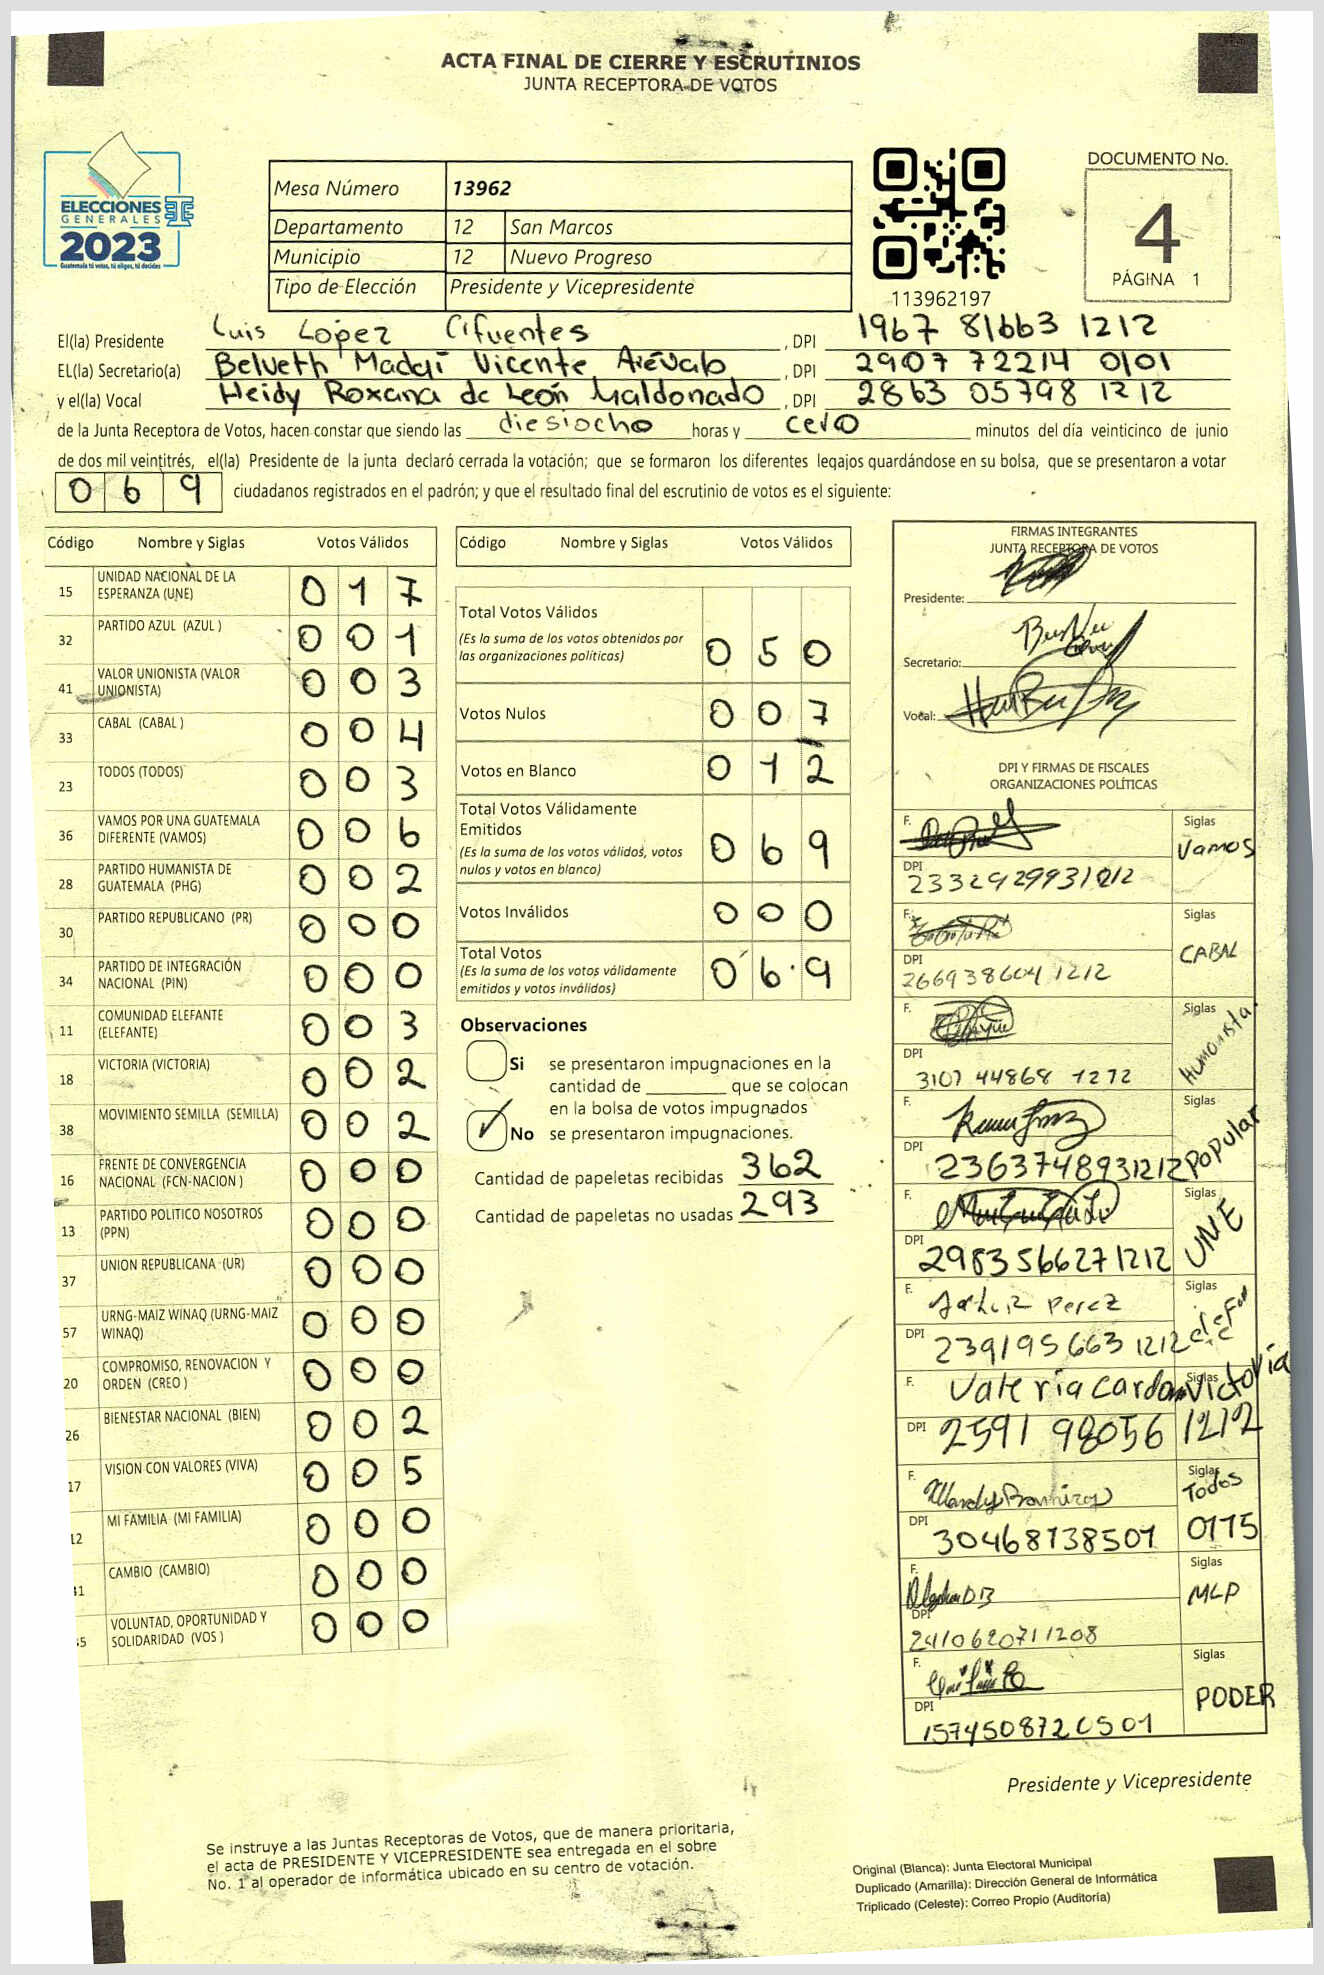 ACTA FINAL DE CIERRE Y ESCRUTINIOS
JUNTA RECEPTORA DE VOTOS
ELECCIONES
GENERALES
2023
Guatemala tú votas, tú eliges, tú decides
Mesa Número 13962
Departamento 12 San Marcos
Municipio 12 Nuevo Progreso
Tipo de Elección Presidente y Vicepresidente
113962197
DOCUMENTO No.
4
PÁGINA 1
El(la) Presidente Luis López Cifuentes , DPI 1967 81663 1212
EL(la) Secretario(a) Belveth Madaí Vicente Arévalo , DPI 2907 72214 0101
y el(la) Vocal Heidy Roxana de León Maldonado , DPI 2863 05798 1212
de la Junta Receptora de Votos, hacen constar que siendo las diesiocho horas y cero minutos del día veinticinco de junio
de dos mil veintitrés, el(la) Presidente de la junta declaró cerrada la votación; que se formaron los diferentes legajos guardándose en su bolsa, que se presentaron a votar
069 ciudadanos registrados en el padrón; y que el resultado final del escrutinio de votos es el siguiente:
Código Nombre y Siglas Votos Válidos
15 UNIDAD NACIONAL DE LA ESPERANZA (UNE) 017
32 PARTIDO AZUL (AZUL ) 001
41 VALOR UNIONISTA (VALOR UNIONISTA) 003
33 CABAL (CABAL ) 004
23 TODOS (TODOS) 003
36 VAMOS POR UNA GUATEMALA DIFERENTE (VAMOS) 006
28 PARTIDO HUMANISTA DE GUATEMALA (PHG) 002
30 PARTIDO REPUBLICANO (PR) 000
34 PARTIDO DE INTEGRACIÓN NACIONAL (PIN) 000
11 COMUNIDAD ELEFANTE (ELEFANTE) 003
18 VICTORIA (VICTORIA) 002
38 MOVIMIENTO SEMILLA (SEMILLA) 002
16 FRENTE DE CONVERGENCIA NACIONAL (FCN-NACION ) 000
13 PARTIDO POLITICO NOSOTROS (PPN) 000
37 UNION REPUBLICANA (UR) 000
57 URNG-MAIZ WINAQ (URNG-MAIZ WINAQ) 000
20 COMPROMISO, RENOVACION Y ORDEN (CREO ) 000
26 BIENESTAR NACIONAL (BIEN) 002
17 VISION CON VALORES (VIVA) 005
12 MI FAMILIA (MI FAMILIA) 000
CAMBIO (CAMBIO) 000
VOLUNTAD, OPORTUNIDAD Y SOLIDARIDAD (VOS ) 000
Código Nombre y Siglas Votos Válidos
Total Votos Válidos
(Es la suma de los votos obtenidos por
las organizaciones políticas) 050
Votos Nulos 007
Votos en Blanco 012
Total Votos Válidamente
Emitidos
(Es la suma de los votos válidos, votos
nulos y votos en blanco) 069
Votos Inválidos 000
Total Votos
(Es la suma de los votos válidamente
emitidos y votos inválidos) 069
Observaciones
Si se presentaron impugnaciones en la
cantidad de que se colocan
en la bolsa de votos impugnados
No se presentaron impugnaciones.
Cantidad de papeletas recibidas 362
Cantidad de papeletas no usadas 293
FIRMAS INTEGRANTES
JUNTA RECEPTORA DE VOTOS
Presidente:
Secretario:
Vocal:
DPI Y FIRMAS DE FISCALES
ORGANIZACIONES POLÍTICAS
F. Siglas Vamos
DPI 2332929931212
F. Siglas CABAL
DPI 2669386041212
F. Siglas Humanista
DPI 3107 44868 1212
F. Siglas Popular
DPI 2363748931212
F. Siglas UNE
DPI 2983566271212
F. Perez Siglas elefan
DPI 239195663 1212
F. Valeria Cardon Siglas Victoria
DPI 2591 98056 1212
F. Wendy Ramirez Siglas Todos
DPI 30468738501 0115
F. Siglas MLP
DPI 2410620711208
F. Siglas PODER
DPI 1574508720501
Presidente y Vicepresidente
Se instruye a las Juntas Receptoras de Votos, que de manera prioritaria,
el acta de PRESIDENTE Y VICEPRESIDENTE sea entregada en el sobre
No. 1 al operador de informática ubicado en su centro de votación.
Original (Blanca): Junta Electoral Municipal
Duplicado (Amarilla): Dirección General de Informática
Triplicado (Celeste): Correo Propio (Auditoría)